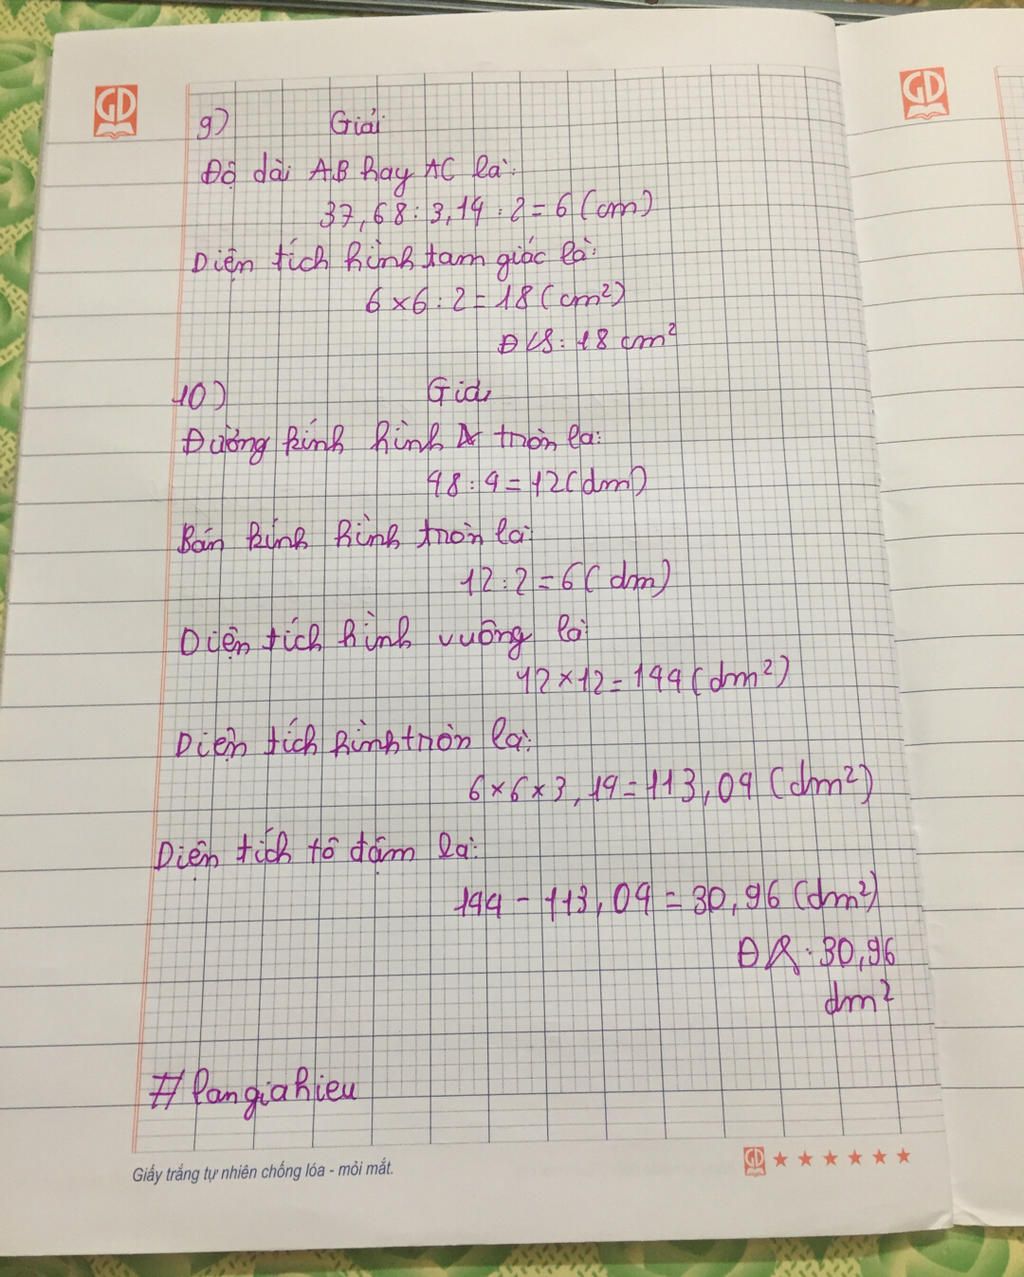 GD
GD
9) Giải
Độ dài AB hay AC là:
37,68 : 3,14 : 2 = 6 (cm)
Diện tích hình tam giác là:
6 × 6 : 2 = 18 (cm²)
Đ/S: 18 cm²
10) Giải
Đường kính hình tròn là:
48 : 4 = 12 (dm)
Bán kính hình tròn là:
12 : 2 = 6 (dm)
Diện tích hình vuông là:
12 × 12 = 144 (dm²)
Diện tích hình tròn là:
6 × 6 × 3,14 = 113,04 (dm²)
Diện tích tô đậm là:
144 - 113,04 = 30,96 (dm²)
Đ/S: 30,96
dm²
#langiahieu
Giấy trắng tự nhiên chống lóa - mỏi mắt.
GD